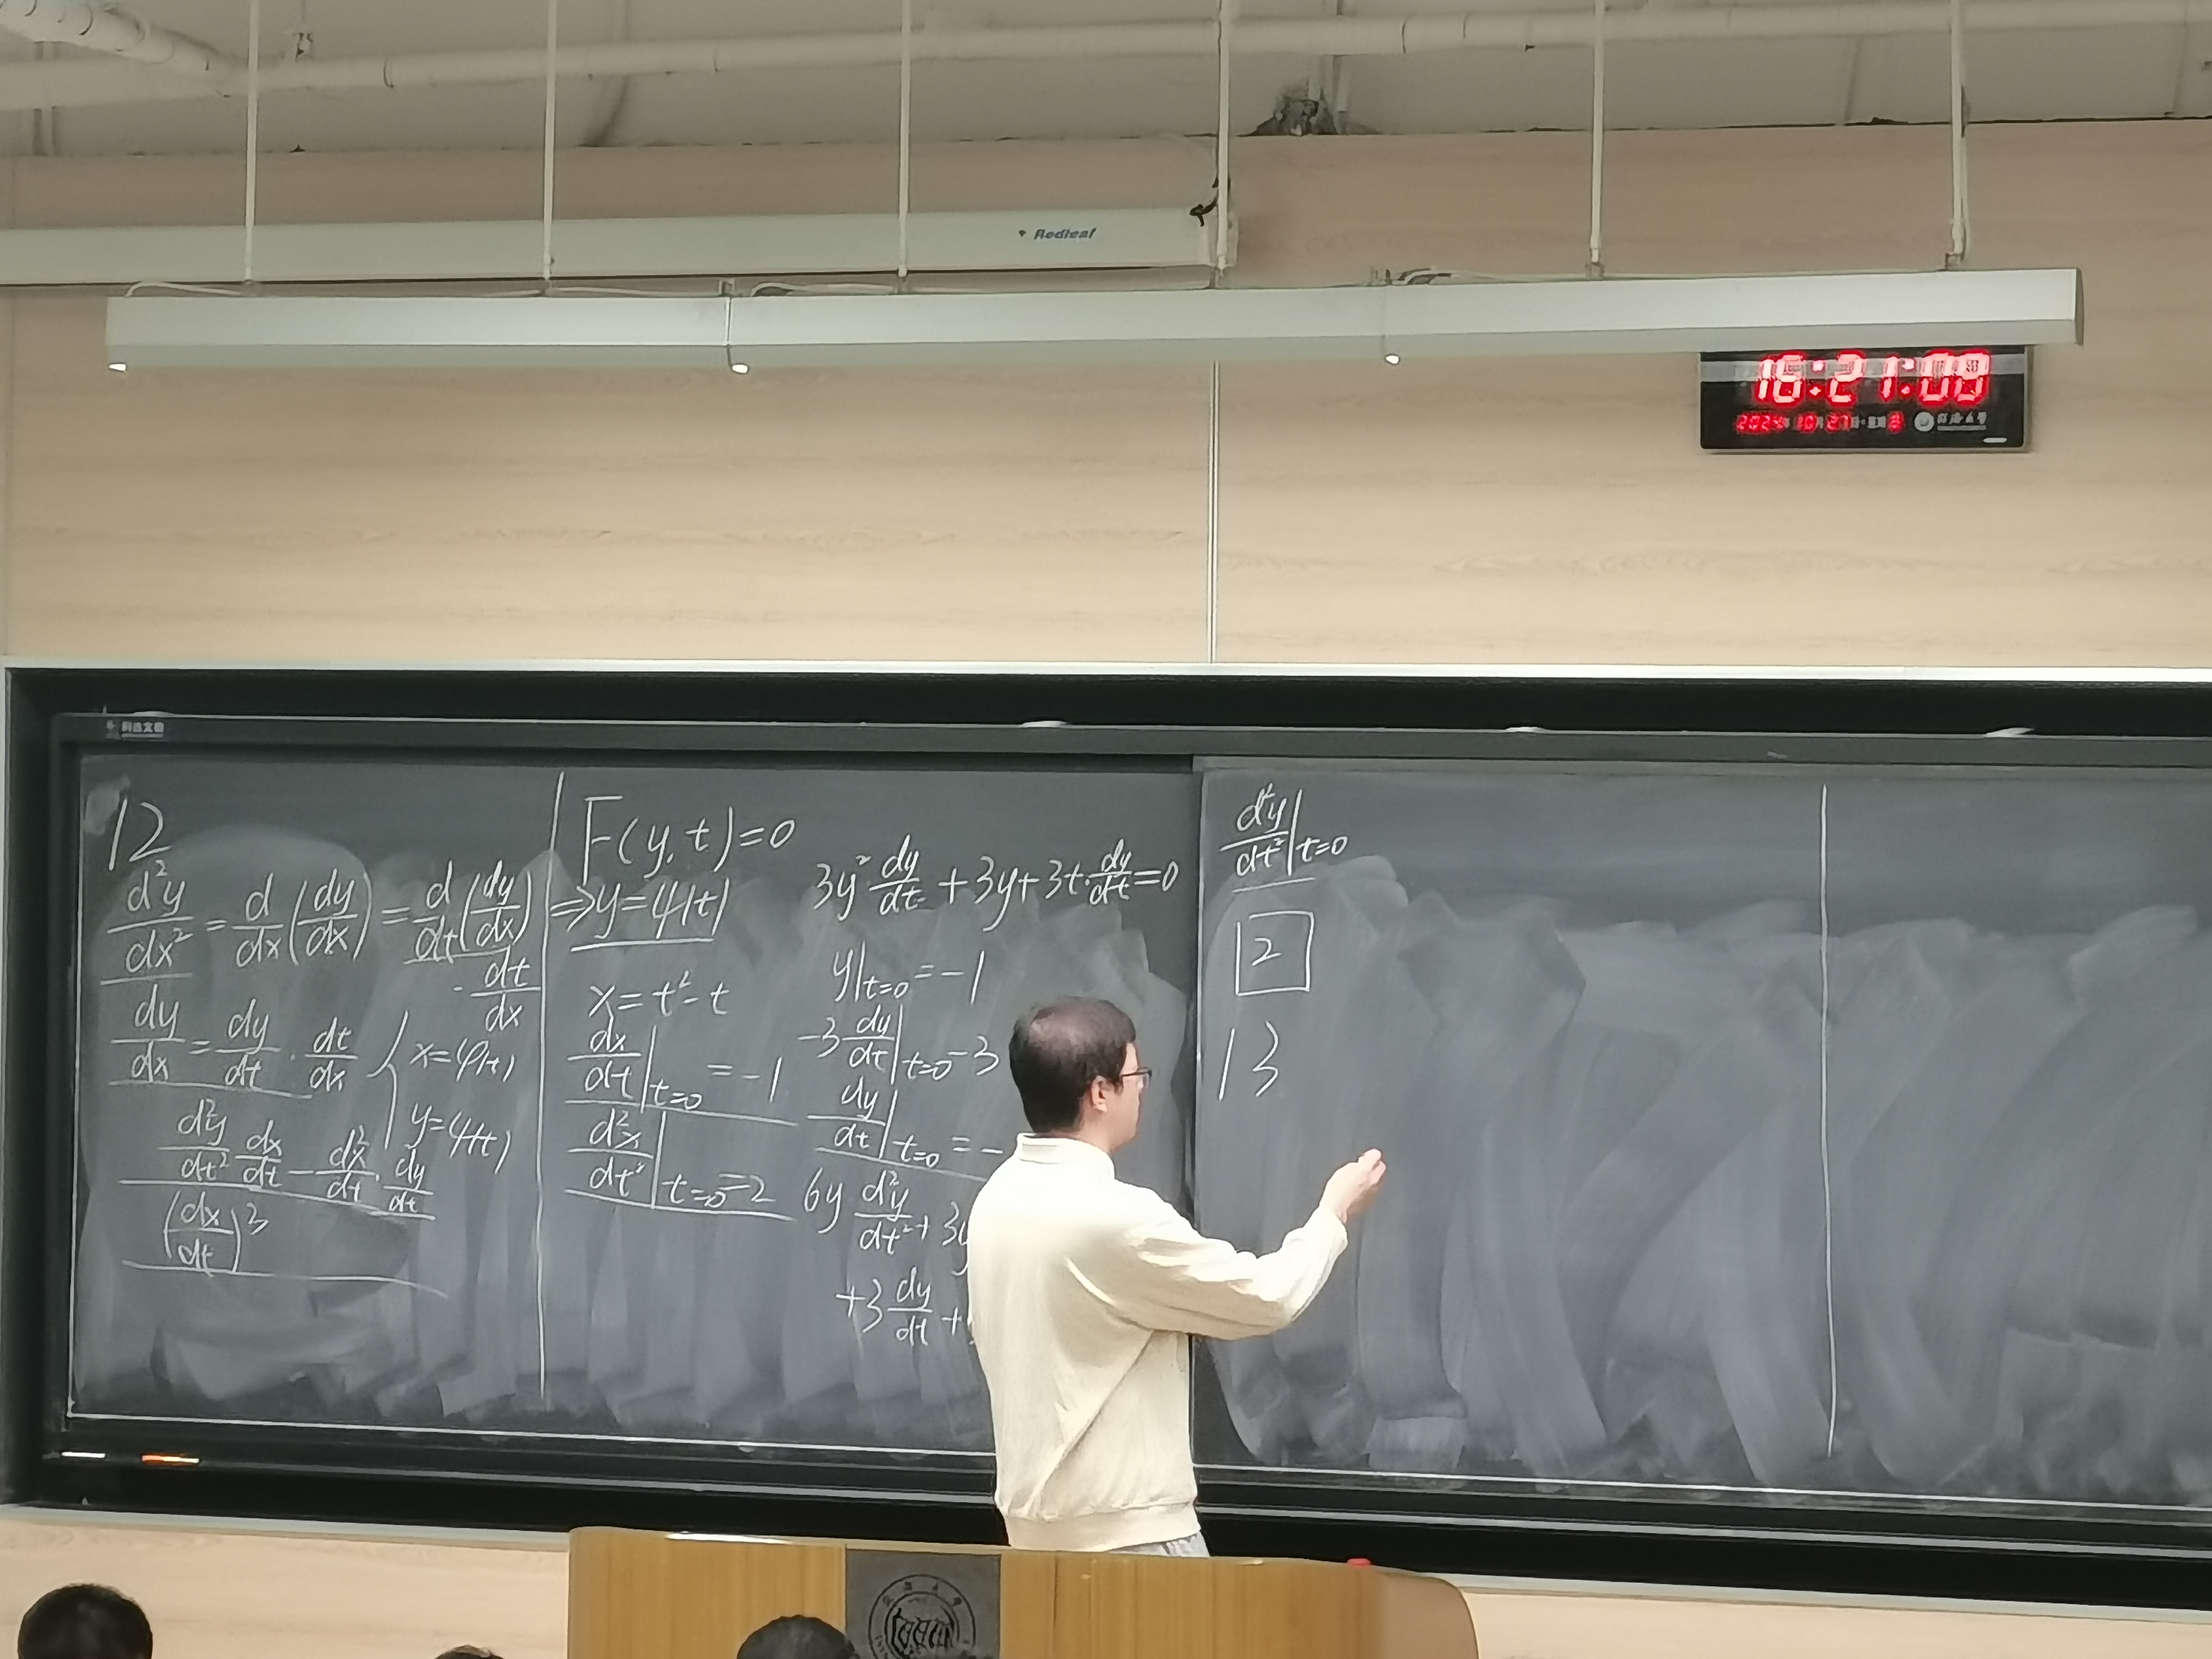 Redleaf
16:21:08
12
d²y/dx² = d/dx(dy/dx) = d/dt(dy/dx)
· dt/dx
dy/dx = dy/dt · dt/dx { x=φ(t)
y=ψ(t)
d²y/dt² dx/dt − d²x/dt² · dy/dt
(dx/dt)³
F(y,t)=0
⇒ y=ψ(t)
x=t²-t
dx/dt|t=0 = -1
d²x/dt²|t=0 = 2
3y² dy/dt + 3y + 3t·dy/dt = 0
y|t=0 = -1
-3 dy/dt|t=0 -3
dy/dt|t=0 = -
6y d²y/dt² + 3y
+3 dy/dt +
d²y/dt²|t=0
2
13